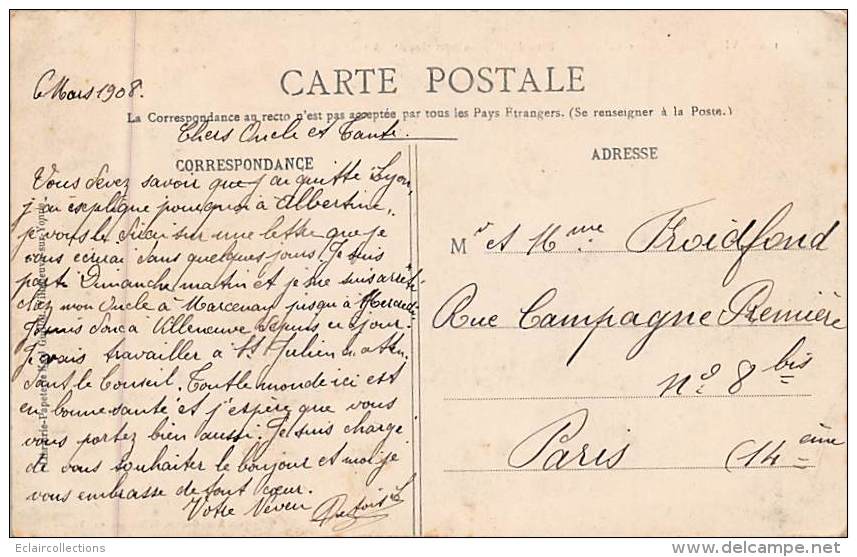 6 Mars 1908.
CARTE POSTALE
La Correspondance au recto n'est pas acceptée par tous les Pays Etrangers. (Se renseigner à la Poste.)
Chers Oncle et Tante
CORRESPONDANCE
ADRESSE
Vous devez savoir que j'ai quitté Lyon,
j'ai expliqué pourquoi à Albertine,
je vous le dirai sur une lettre que je
vous écrirai dans quelques jours. Je suis
parti Dimanche matin et je me suis arrêté
chez mon Oncle à Marcenay jusqu'à Mercredi
Je suis donc à Villeneuve depuis ce jour.
Je vais travailler à St Julien en atten
dant le Conseil. Tout le monde ici est
en bonne santé et j'espère que vous
vous portez bien aussi. Je suis chargé
de vous souhaiter le bonjour et moi je
vous embrasse de tout cœur.
Votre Neveu
Mr et Mme Froidfond
Rue Campagne Première
No 8 bis
Paris (14ème
Librairie-Papeterie Villeneuve-sur-Yonne
Eclaircollections
delcampe.net